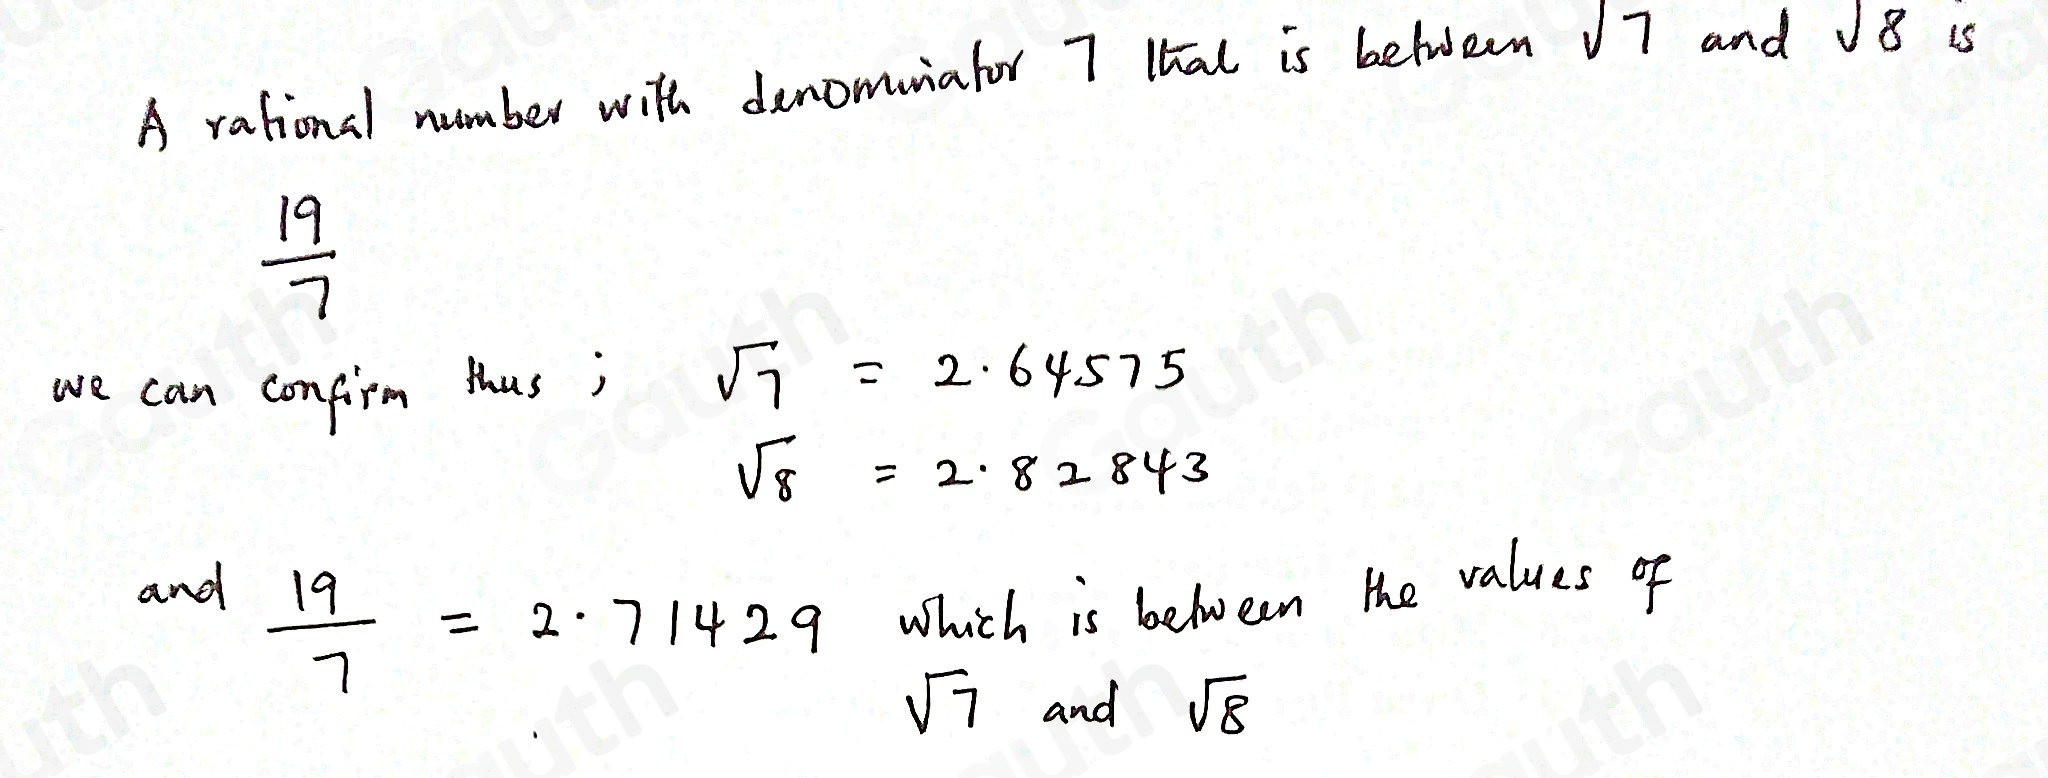 A rational number with denominator 7 that is between √7 and √8 is
19/7
we can confirm thus ; √7 = 2.64575
√8 = 2.82843
and 19/7 = 2.71429 which is between the values of
√7 and √8